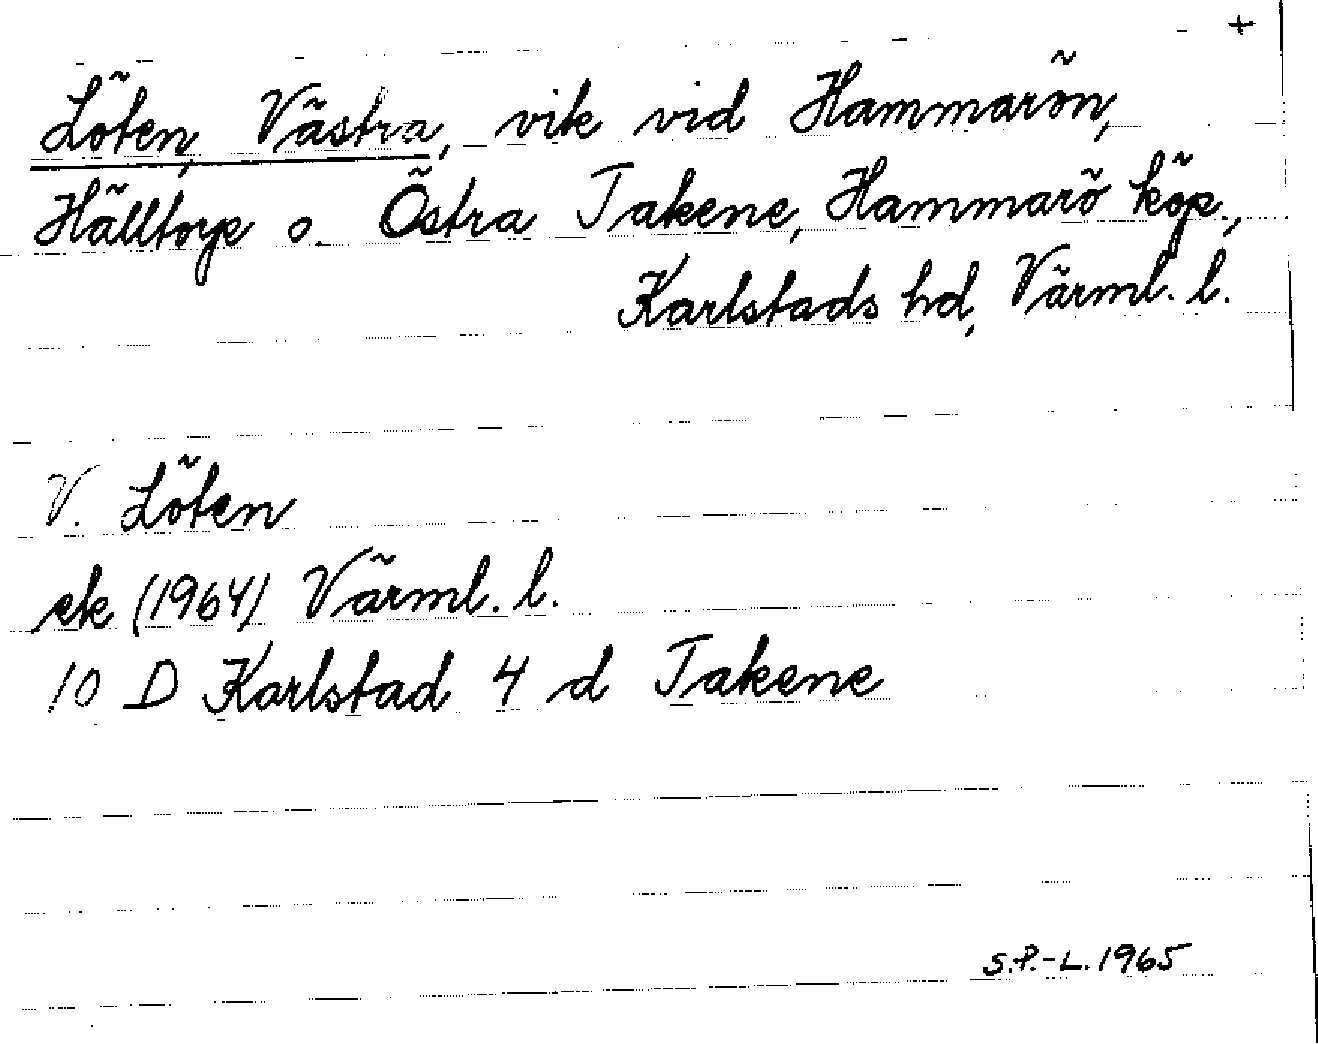 +
Löten, Västra, vik vid Hammarön,
Hälltorp o. Östra Takene, Hammarö köp.,
Karlstads hd, Värml. l.
V. Löten
ek (1964) Värml. l.
10 D Karlstad 4 d Takene
S.P.-L. 1965